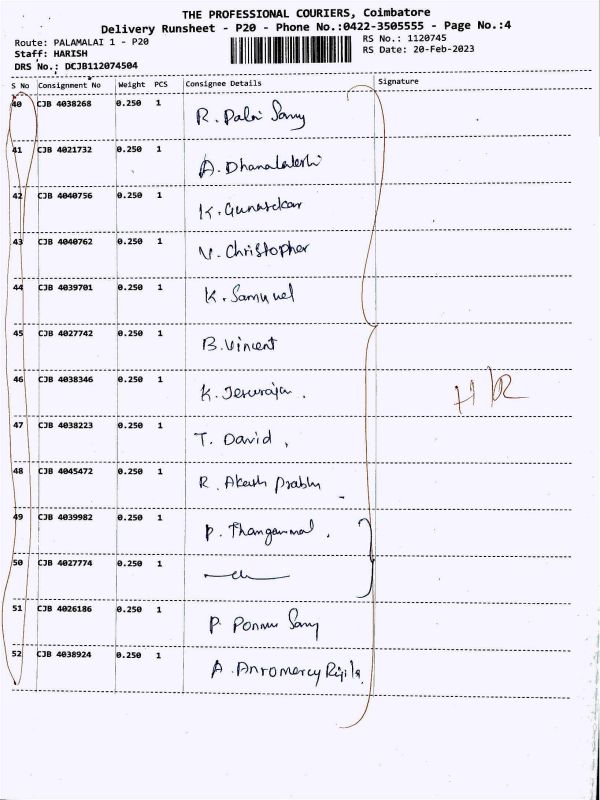 THE PROFESSIONAL COURIERS, Coimbatore
Delivery Runsheet - P20 - Phone No.:0422-3505555 - Page No.:4
Route: PALAMALAI 1 - P20
RS No.: 1120745
Staff: HARISH
RS Date: 20-Feb-2023
DRS No.: DCJB112074504
S No Consignment No Weight PCS Consignee Details Signature
40 CJB 4038268 0.250 1 R. Palai Samy
41 CJB 4021732 0.250 1 A. Dhanalakshi
42 CJB 4040756 0.250 1 K. Gunasekar
43 CJB 4040762 0.250 1 V. Christopher
44 CJB 4039701 0.250 1 K. Samuvel
45 CJB 4027742 0.250 1 B. Vincent
46 CJB 4038346 0.250 1 K. Jesuraja.
H/R
47 CJB 4038223 0.250 1 T. David,
48 CJB 4045472 0.250 1 R. Akash Prabhu
49 CJB 4039982 0.250 1 P. Thangammal.
50 CJB 4027774 0.250 1 —du—
51 CJB 4026186 0.250 1 P. Ponnu Samy
52 CJB 4038924 0.250 1 A. Anromercy Rijila.